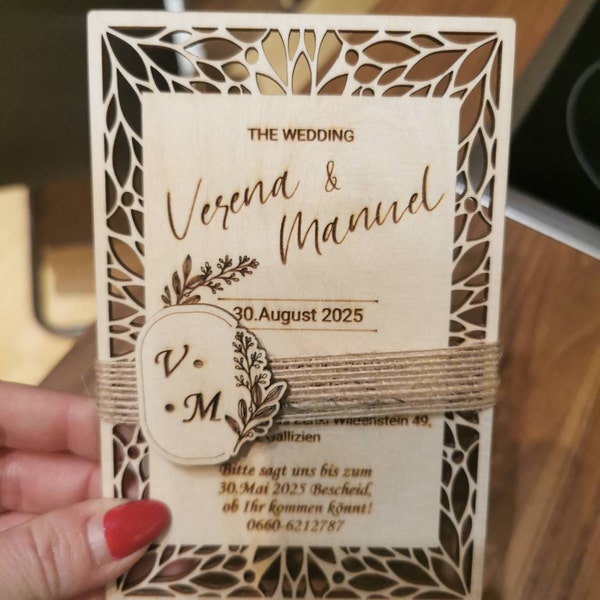 THE WEDDING
Verena &
Manuel
30.August 2025
V.
.M
Wildenstein 49,
Gallizien
Bitte sagt uns bis zum
30.Mai 2025 Bescheid,
ob Ihr kommen könnt!
0660-6212787